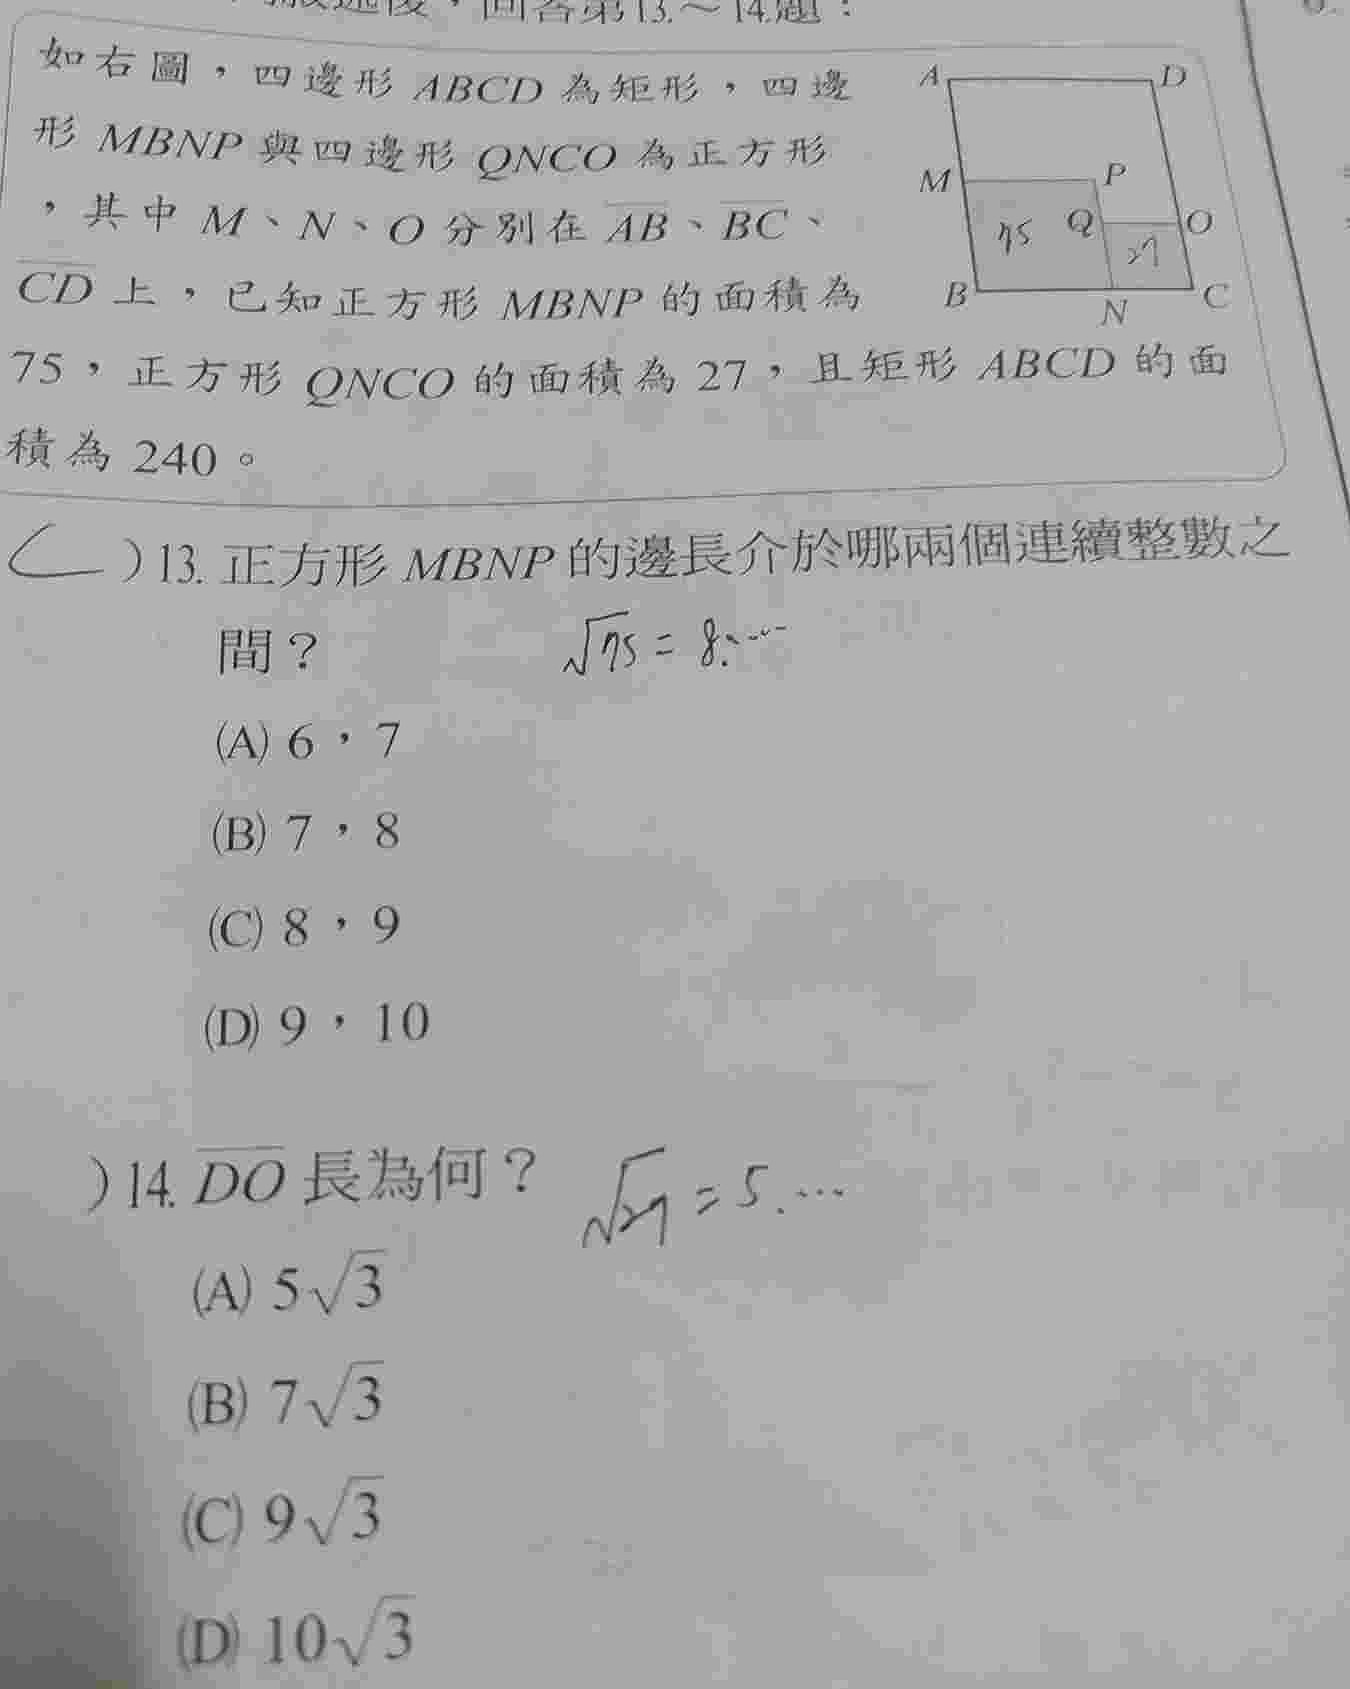 回答第13.～14.題：
如右圖，四邊形 ABCD 為矩形，四邊
形 MBNP 與四邊形 QNCO 為正方形
，其中 M、N、O 分別在 AB、BC、
CD 上，已知正方形 MBNP 的面積為
75，正方形 QNCO 的面積為 27，且矩形 ABCD 的面
積為 240。
A D
M P
75 Q O
27
B N C
C )13. 正方形 MBNP 的邊長介於哪兩個連續整數之
間？ √75 = 8.....
(A) 6，7
(B) 7，8
(C) 8，9
(D) 9，10
)14. DO 長為何？ √27 = 5....
(A) 5√3
(B) 7√3
(C) 9√3
(D) 10√3